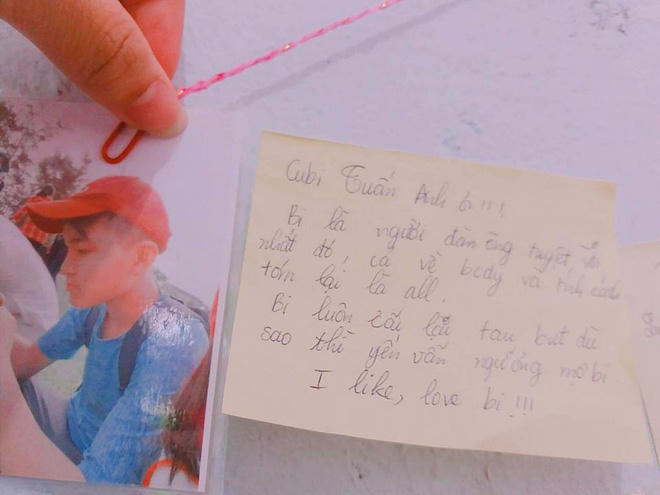 Cubi Tuấn Anh ơi !!!
Bi là người đàn ông tuyệt vời
nhất đó, cả về body và tính cách
tóm lại là all.
Bi luôn cãi lại tau but dù
sao thì yến vẫn ngưỡng mộ bi
I like, love bi !!!